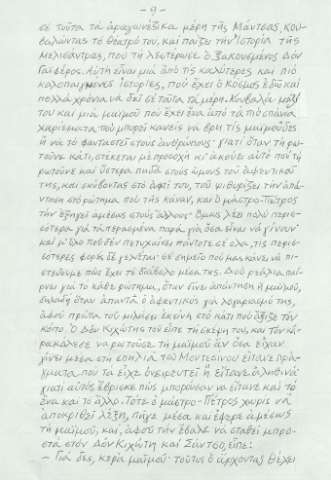 - 9 -
σέ τοῦτα τά ἀραγωνέζικα μέρη τῆς Μάντσας, κου-
βαλώντας τό θέατρό του, καί παίζει τήν ἱστορία τῆς
Μελισάντρας, πού τή λευτέρωσε ὁ ξακουσμένος Δόν
Γαϊφέρος. Αὐτή εἶναι μιά ἀπό τίς καλύτερες καί πιό
καλοπαιγμένες ἱστορίες, πού ἔχει ὁ κόσμος ἐδῶ καί
πολλά χρόνια νά δεῖ σέ τοῦτα τά μέρη. Κουβαλᾶ μαζί
του καί μιά μαϊμού πού ἔχει ἕνα ἀπό τά πιό σπάνια
χαρίσματα πού μπορεῖ κανείς νά βρεῖ τίς μαϊμοῦδες
ἤ νά τό φανταστεῖ στούς ἀνθρώπους· γιατί ὅταν τή ρω-
τοῦνε κάτι, στέκεται μέ προσοχή κι ἀκούει αὐτό πού τή
ρωτοῦνε καί ὕστερα πηδᾶ στούς ὤμους τοῦ ἀφεντικοῦ
της, καί σκύβοντας στό ἀφτί του, τοῦ ψιθυρίζει τήν ἀπά-
ντηση στό ρώτημα πού τῆς κάναν, καί ὁ μάστρο-Πέτρος
τήν ἐξηγεῖ ἀμέσως στούς ἄλλους· ὅμως λέει πολύ περισ-
σότερα γιά τά περασμένα παρά γιά ὅσα εἶναι νά γίνουν·
καί μ' ὅλο πού δέν πετυχαίνει πάντοτε σέ ὅλα, τίς περισ-
σότερες φορές δέ γελιέται· σέ σημεῖο πού μᾶς κάνει νά πι-
στεύουμε πώς ἔχει τό διάβολο μέσα της. Δυό ρεάλια παί-
ρνει γιά τό κάθε ρώτημα, ὅταν δίνει ἀπάντηση ἡ μαϊμού,
δηλαδή ὅταν ἀπαντᾶ ὁ ἀφεντικός γιά λογαριασμό της,
ἀφοῦ πρῶτα τοῦ μιλήσει ἐκείνη στό κάτι πού ἀξίζει τόν
κόπο. Ὁ Δόν Κιχώτης τοῦ εἶπε τή σκέψη του, καί τόν πα-
ρακάλεσε νά ρωτήσει τή μαϊμού ἄν ὅσα εἶχαν
γίνει μέσα στή σπηλιά τοῦ Μοντεσίνου εἴτανε πρά-
γματα πού τά εἶχε ὀνειρευτεῖ ἤ εἴτανε ἀληθινά·
γιατί αὐτός ἔβρισκε πώς μπορούσαν νά εἴτανε καί τό
ἕνα καί τό ἄλλο. Τότε ὁ μάστρο-Πέτρος χωρίς νά
ἀποκριθεῖ λέξη, πῆγε μέσα καί ἔφερε ἀμέσως
τή μαϊμού, καί, ἀφοῦ τήν ἔβαλε νά σταθεῖ μπρο-
στά στόν Δόν Κιχώτη καί Σάντσο, εἶπε:
- Γιά δές, κυρά μαϊμού· τοῦτος ὁ ἄρχοντας θέλει